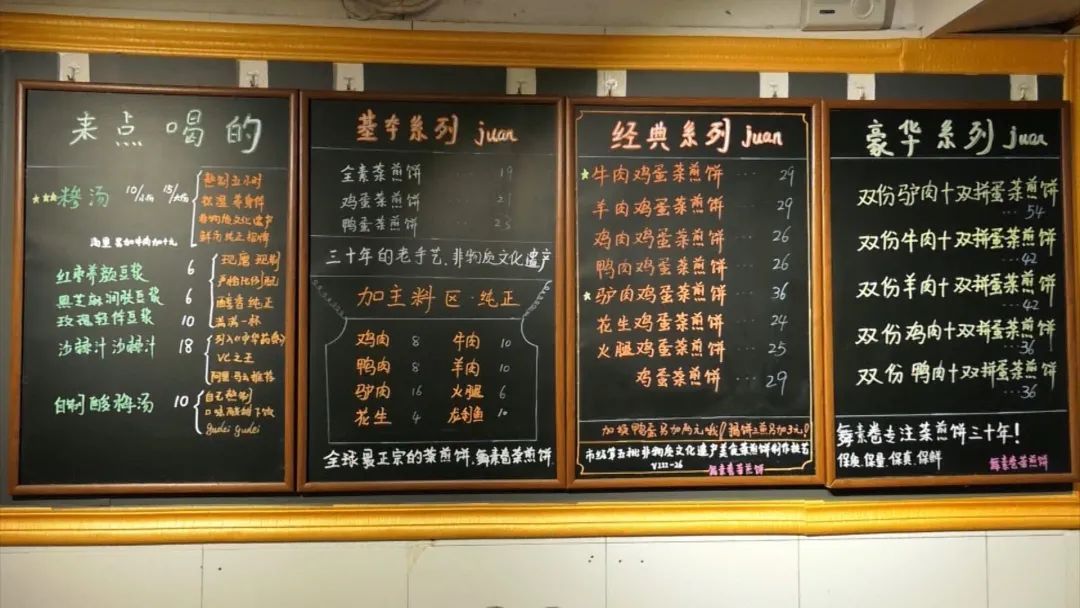 来点喝的
★★★ 糁汤 10/小碗 15/大碗
熬制五小时
非物质文化遗产
红枣养颜豆浆 6
黑芝麻润肤豆浆 6
玫瑰轻体豆浆 10
沙棘汁 沙棘汁 18
现磨 现制
严格比例配
醇香纯正
满满一杯
列入《中华药典》
VC之王
阿里马云推荐
自制酸梅汤 10
自己熬制
口味酸甜下饭
gudei gudei
基本系列 juan
全素菜煎饼 ... 19
鸡蛋菜煎饼 ... 21
鸭蛋菜煎饼 ... 23
三十年的老手艺、非物质文化遗产
加主料区·纯正
鸡肉 8 牛肉 10
鸭肉 8 羊肉 10
驴肉 16 火腿 6
花生 4 龙利鱼 10
全球最正宗的菜煎饼、舞素卷菜煎饼
经典系列 juan
★牛肉鸡蛋菜煎饼 ... 29
羊肉鸡蛋菜煎饼 ... 29
鸡肉鸡蛋菜煎饼 ... 26
鸭肉鸡蛋菜煎饼 ... 26
★驴肉鸡蛋菜煎饼 ... 36
花生鸡蛋菜煎饼 ... 24
火腿鸡蛋菜煎饼 ... 25
鸡蛋菜煎饼 ... 29
市级第五批非物质文化遗产美食菜煎饼制作技艺
VIII-26
舞素卷菜煎饼
豪华系列 juan
双份驴肉+双拼蛋菜煎饼
... 54
双份牛肉+双拼蛋菜煎饼
... 42
双份羊肉+双拼蛋菜煎饼
... 42
双份鸡肉+双拼蛋菜煎饼
... 36
双份鸭肉+双拼蛋菜煎饼
... 36
舞素卷专注菜煎饼三十年!
保质、保量、保真、保鲜
舞素卷菜煎饼